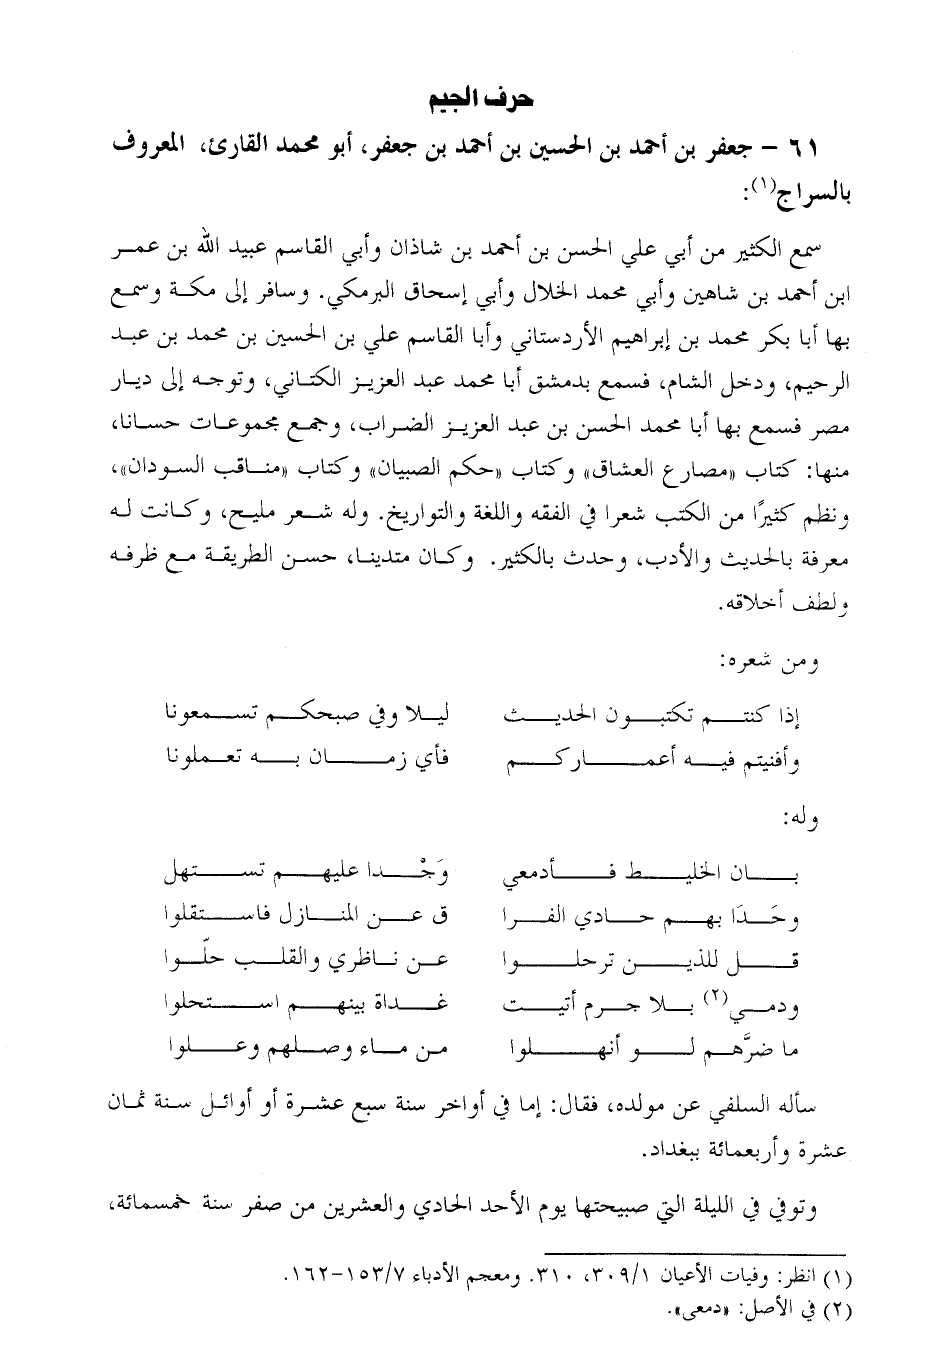 حرف الجيم
٦١ – جعفر بن أحمد بن الحسين بن أحمد بن جعفر، أبو محمد القارئ، المعروف
بالسراج(١):
سمع الكثير من أبي علي الحسن بن أحمد بن شاذان وأبي القاسم عبيد الله بن عمر
ابن أحمد بن شاهين وأبي محمد الخلال وأبي إسحاق البرمكي. وسافر إلى مكة وسمع
بها أبا بكر محمد بن إبراهيم الأردستاني وأبا القاسم علي بن الحسين بن محمد بن عبد
الرحيم، ودخل الشام، فسمع بدمشق أبا محمد عبد العزيز الكتاني، وتوجه إلى ديار
مصر فسمع بها أبا محمد الحسن بن عبد العزيز الضراب، وجمع مجموعات حسانا،
منها: كتاب «مصارع العشاق» وكتاب «حكم الصبيان» وكتاب «مناقب السودان»،
ونظم كثيرًا من الكتب شعرا في الفقه واللغة والتواريخ. وله شعر مليح، وكانت له
معرفة بالحديث والأدب، وحدث بالكثير. وكان متدينا، حسن الطريقة مع ظرفه
ولطف أخلاقه.
ومن شعره:
إذا كنتم تكتبون الحديث ليلا وفي صبحكم تسمعونا
وأفنيتم فيه أعماركم فأي زمان به تعملونا
وله:
بان الخليط فأدمعي وَجْدا عليهم تستهل
وحَدَا بهم حادي الفرا ق عن المنازل فاستقلوا
قل للذين ترحلوا عن ناظري والقلب حلّوا
ودمي(٢) بلا جرم أتيت غداة بينهم استحلوا
ما ضرَّهم لو أنهلوا من ماء وصلهم وعلوا
سأله السلفي عن مولده، فقال: إما في أواخر سنة سبع عشرة أو أوائل سنة ثمان
عشرة وأربعمائة ببغداد.
وتوفي في الليلة التي صبيحتها يوم الأحد الحادي والعشرين من صفر سنة خمسمائة،
(١) انظر: وفيات الأعيان ٣٠٩/١، ٣١٠. ومعجم الأدباء ١٥٣/٧–١٦٢.
(٢) في الأصل: «دمعى».